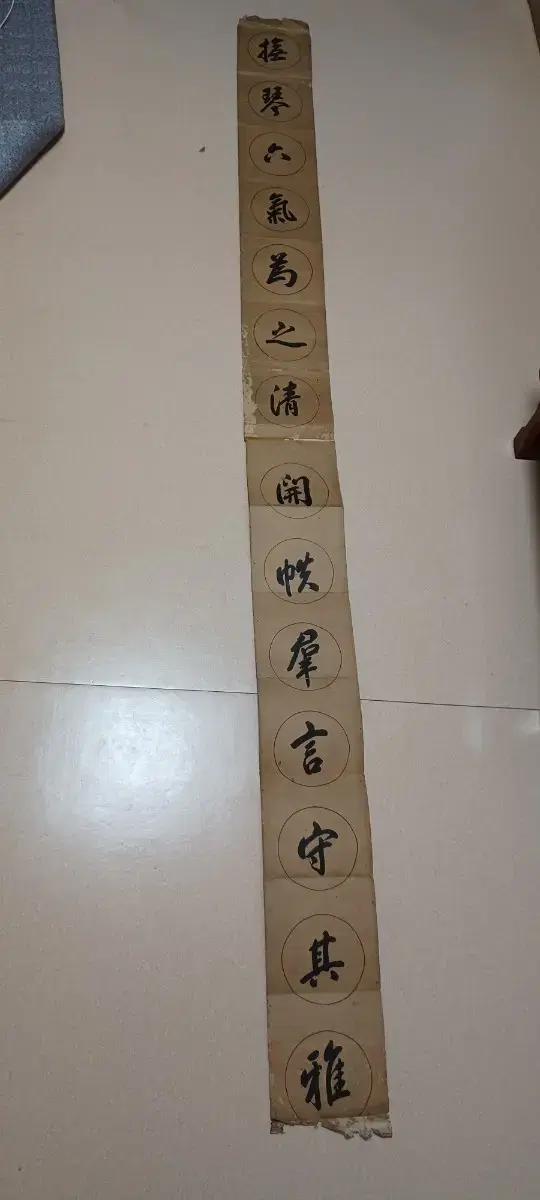 撫琴六氣為之清開帙羣言守其雅